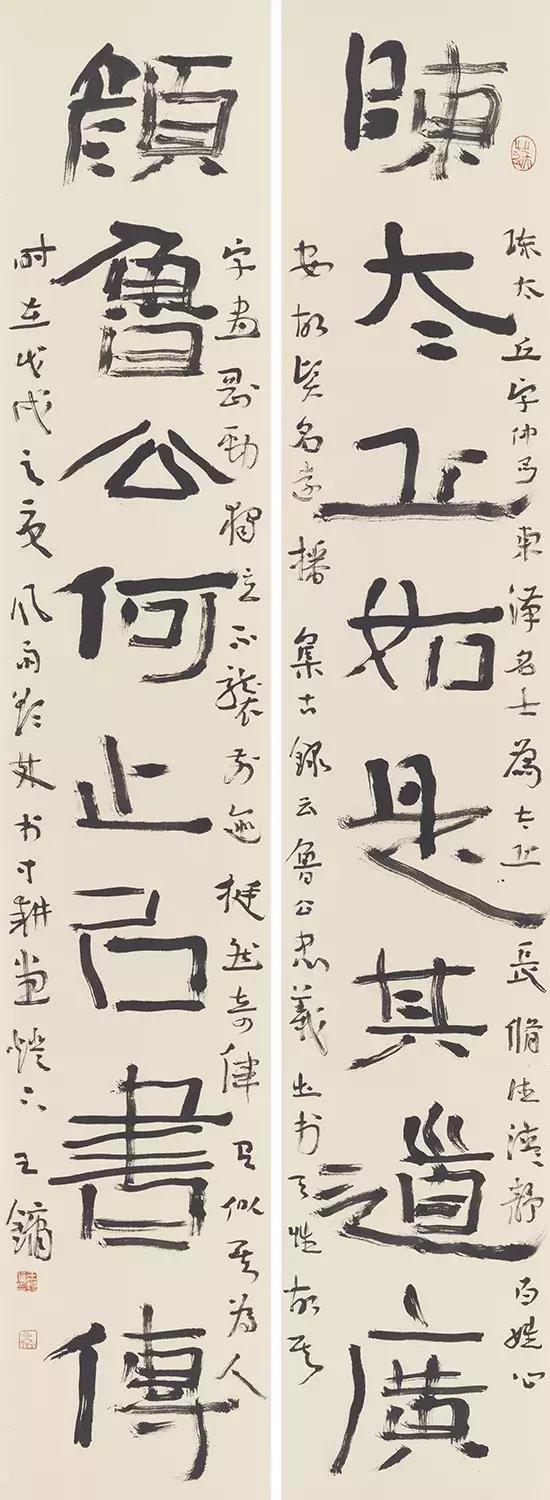 陳太丘如是其道廣
陈太丘字仲弓東漢名士為太丘長脩德清靜百姓心
安故賢名遠播集古録云魯公忠義出於天性故其
顏魯公何止以書傳
字畫剛勁獨立不襲前迹挺然奇偉有似其為人
时在戊戌之夏風雨书寸耕堂燈下王鏞